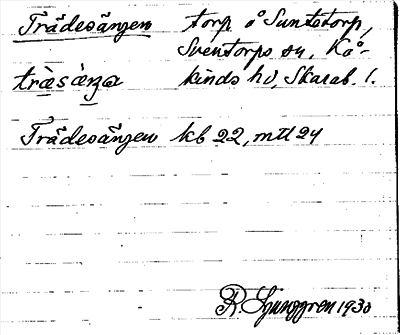 Trädesängen torp å Suntetorp,
Sventorps sn, Kå-
träsäŋa kinds hd, Skarab. l.
Trädesängen kb 22, mtl 24
R. Ljunggren 1930